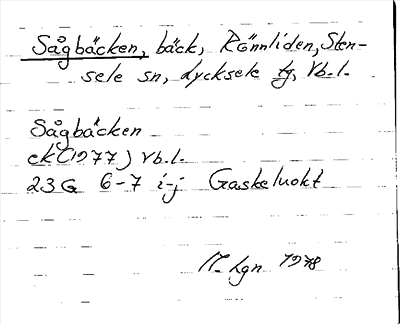 Sågbäcken, bäck, Rönnliden, Sten-
sele sn, Lycksele tg, Vb. l.
Sågbäcken
ek (1977) Vb. l.
23G 6-7 i-j Gaskeluokt
M. Lgn 1978